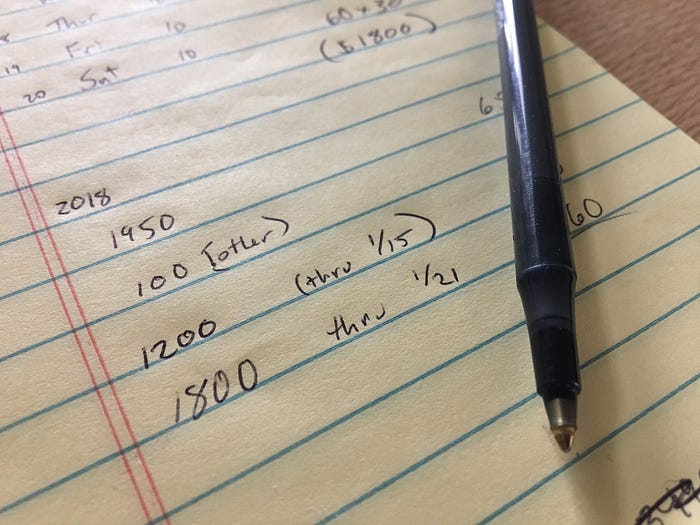 Thur 10 60 x 30
19 Fri 10 ($1800)
20 Sat
2018
1950
100 [other)
1200 (thru 1/15)
1800 thru 1/21
60